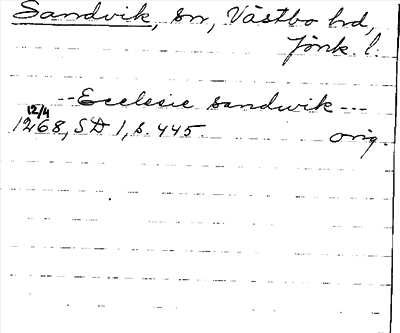 Sandvik, sn, Västbo hd,
Jönk. l.
--Ecclesie sandwik---
12/4
1268, SD 1, s. 445. orig.